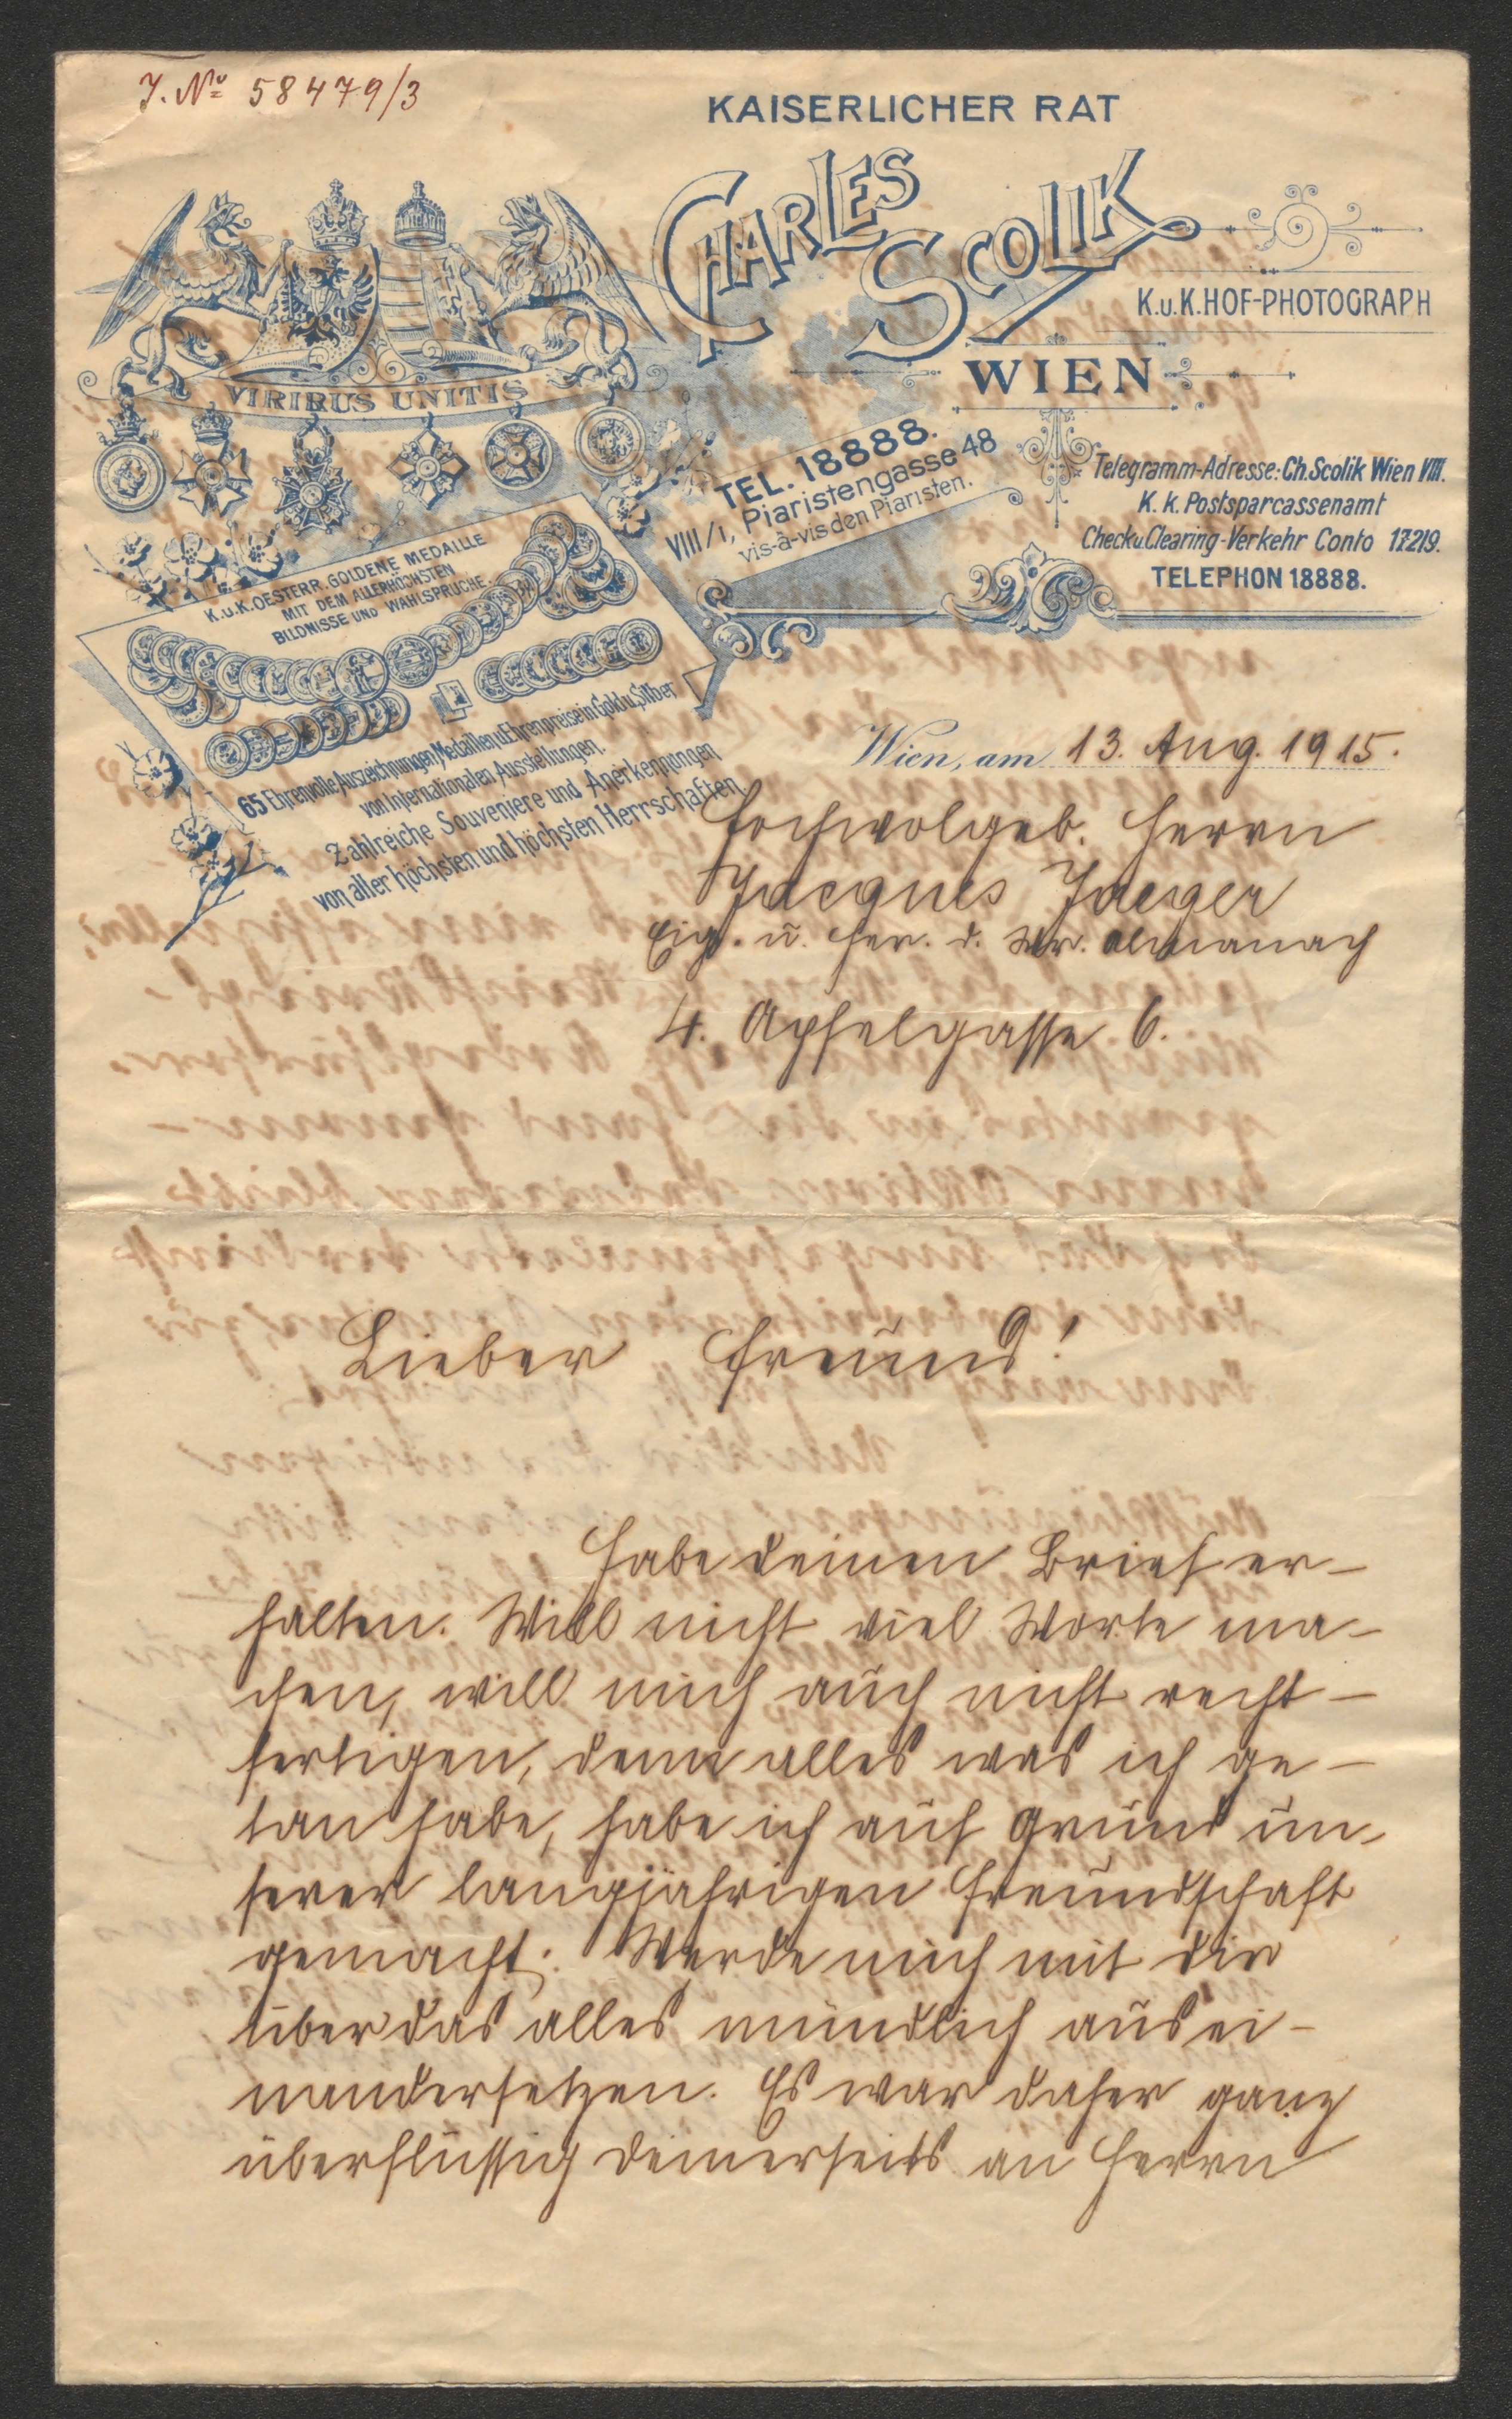 J. No 58479/3
KAISERLICHER RAT
CHARLES SCOLIK
K.u.K.HOF-PHOTOGRAPH
WIEN
VIRIBUS UNITIS
TEL. 18888.
VIII/1, Piaristengasse 48
vis-à-vis den Piaristen.
Telegramm-Adresse: Ch. Scolik Wien VIII.
K. k. Postsparcassenamt
Check u. Clearing-Verkehr Conto 17219.
TELEPHON 18888.
K.u.K. OESTERR. GOLDENE MEDAILLE
MIT DEM ALLERHÖCHSTEN
BILDNISSE UND WAHLSPRUCHE
65 Ehrenvolle Auszeichnungen, Medaillen u. Ehrenpreise in Gold u. Silber
von Internationalen Ausstellungen.
Zahlreiche Souveniere und Anerkennungen
von aller höchsten und höchsten Herrschaften
Wien, am 13. Aug. 1915.
Hochwolgeb. Herrn
Jacques Jaeger
Eig. u. Her. d. Wr. Almanach
4. Apfelgasse 6.
Lieber Freund!
Habe deinen Brief er-
halten. Will nicht viel Worte ma-
chen, will mich auch nicht recht-
fertigen, denn alles was ich ge-
tan habe, habe ich auf Grund un-
serer langjährigen Freundschaft
gemacht. Werde mich mit dir
über das alles mündlich ausei-
nandersetzen. Es war daher ganz
überflüssig deinerseits an Herrn